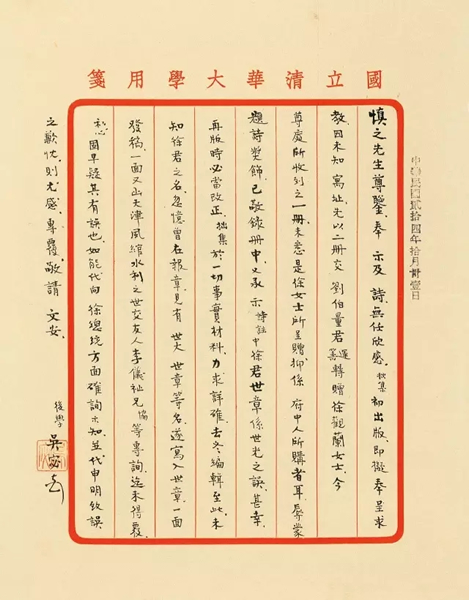 國立清華大學用箋
中華民國貳拾四年拾月廿壹日
慎之先生尊鑒.奉 示及 詩.無任欣感.拙集初出版.即擬奉呈求
教因未知 寓址先以二冊交 劉伯量君轉贈徐觀蘭女士.今
尊處所收到之一冊未悉是徐女士所呈贈抑係 府中人所購者耳.辱蒙
題詩獎飾.已敬錄冊中又承 示詩註中徐君世章係世光之誤.甚幸.
再版時必當改正.拙集於一切事實材料.力求詳確.去冬編輯至此.未
知徐君之名.忽憶曾在報章見有 世光 世章等名.遂寫入世章.一面
發稿.一面又函天津水利之世交友人李儀祉兄協等專詢.迄未得覆.
私心固早疑其有誤也.如能代向 徐總統方面確詢示知.並代申明致誤
之歉忱.則尤感.專覆.敬請 文安.
後學 吳宓